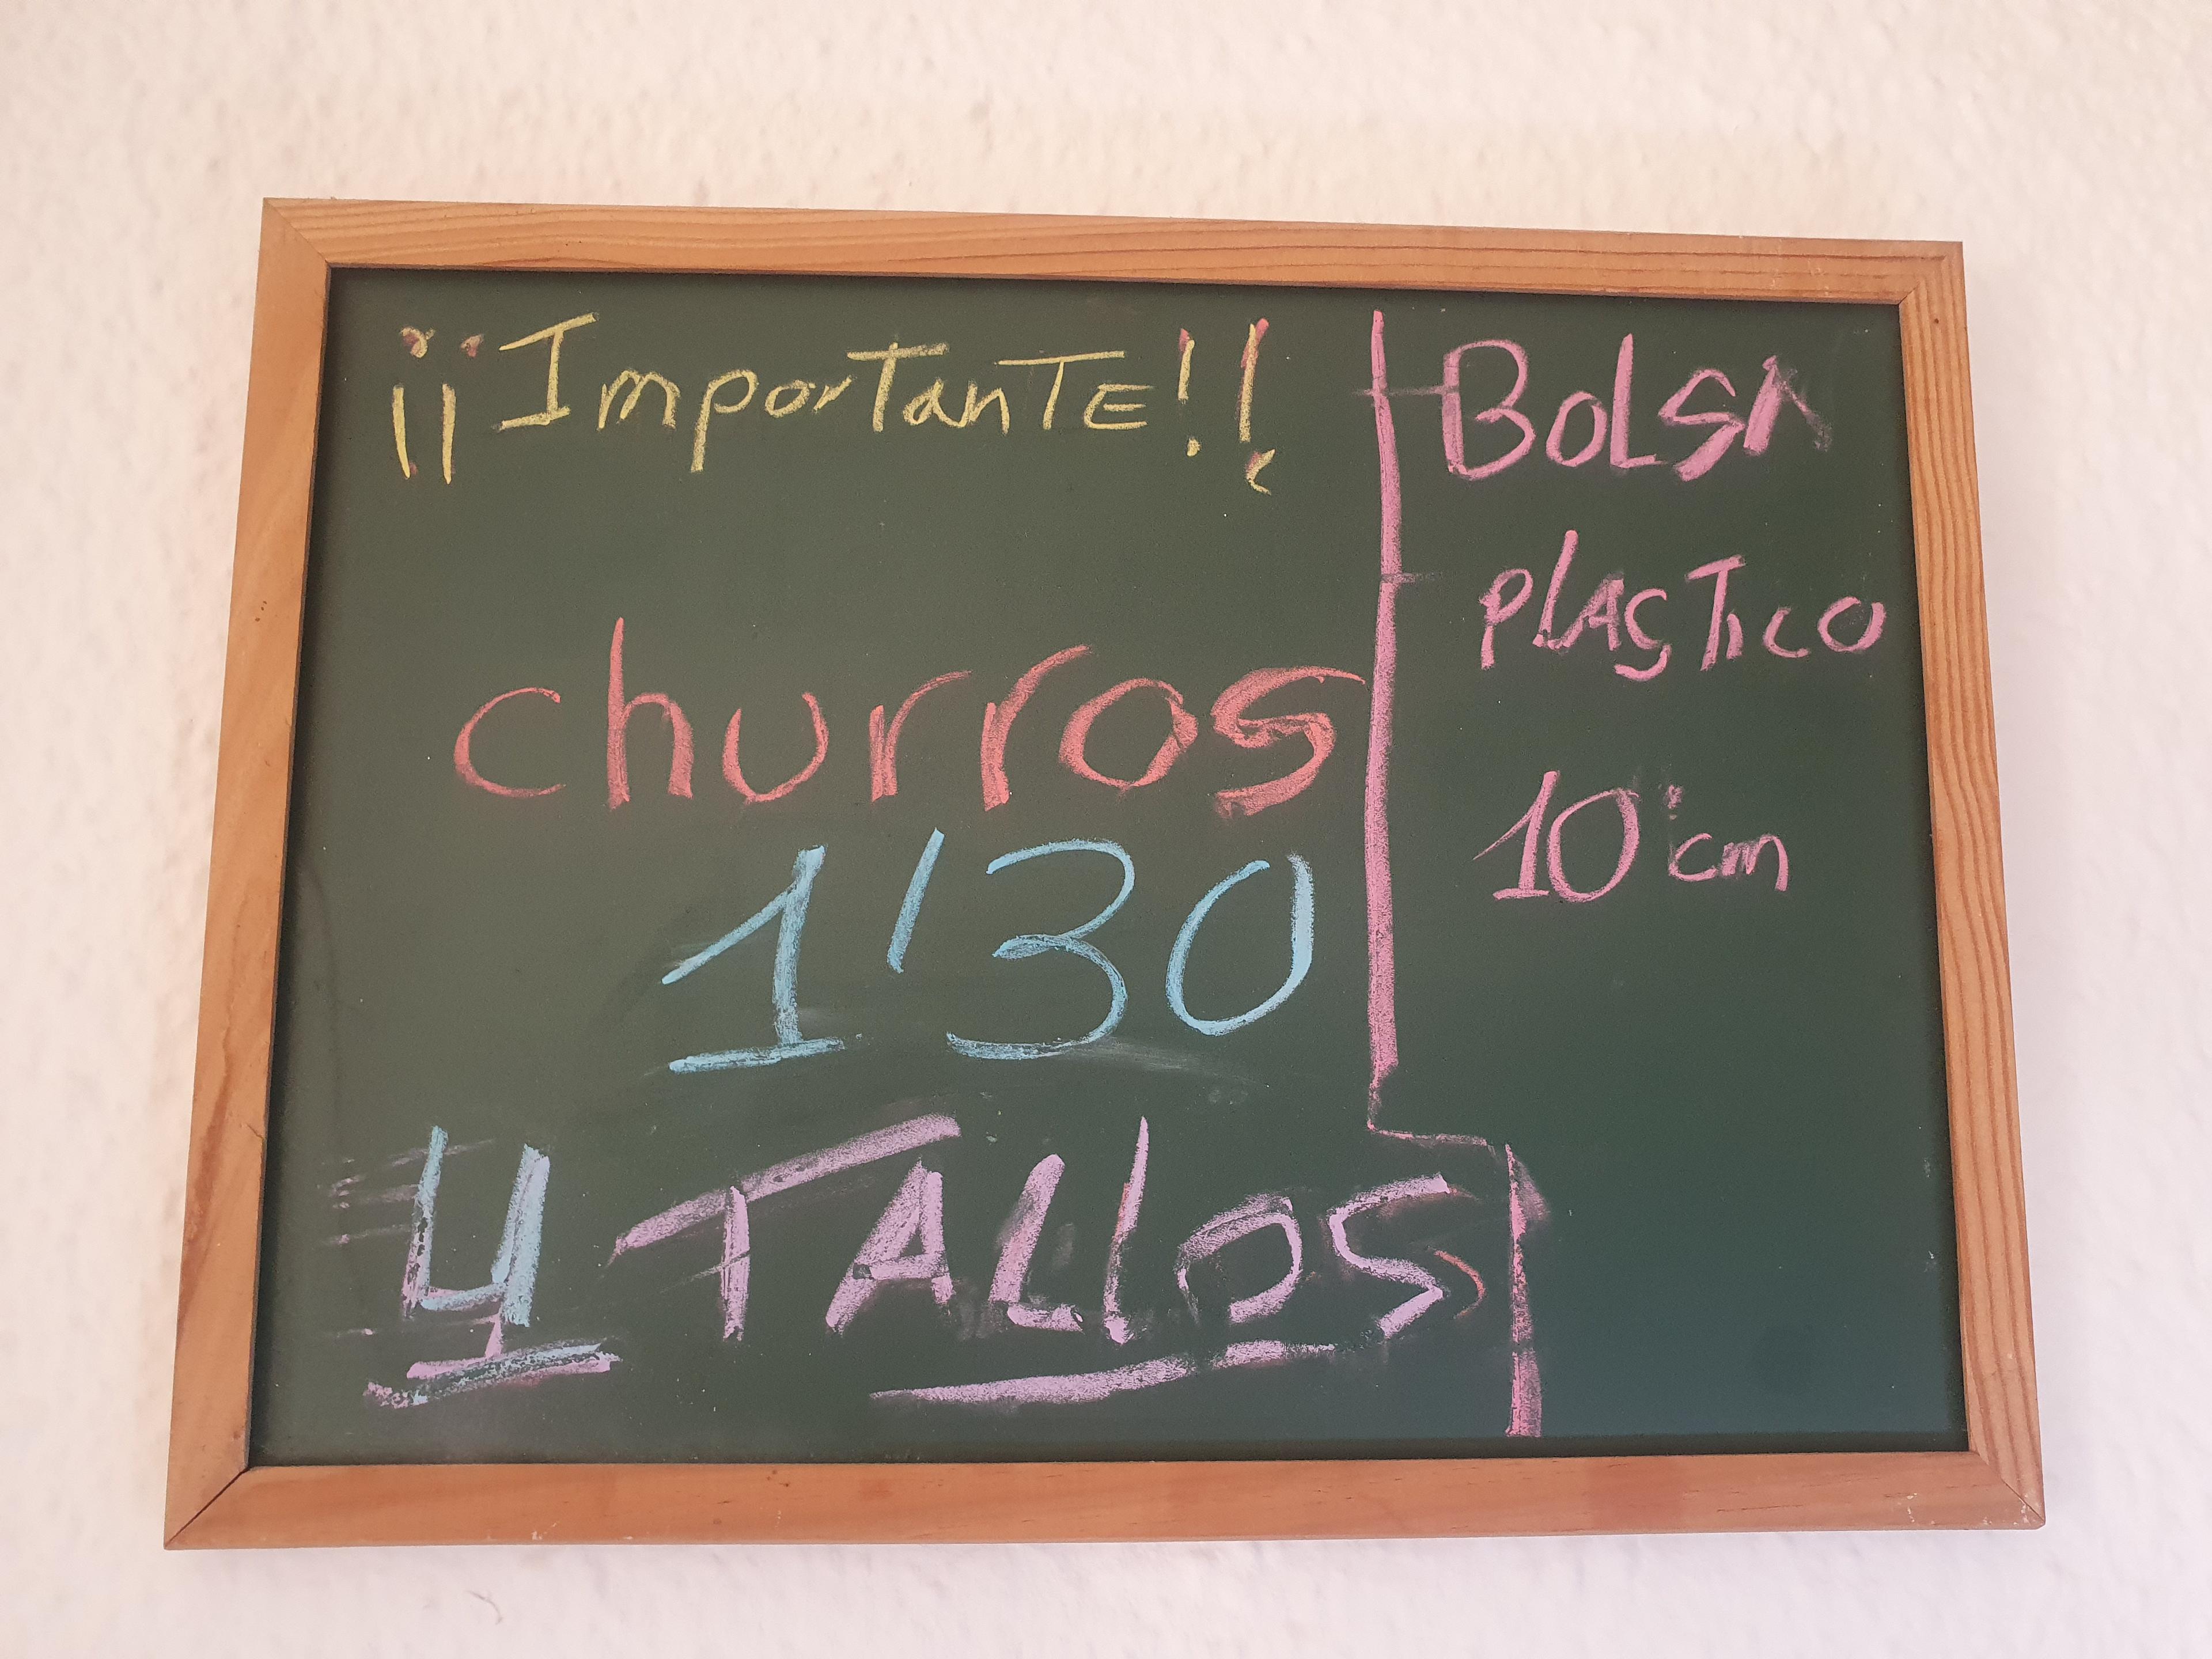 ¡¡Importante!!
churros
1'30
4 TALLOS
BOLSA
PLASTICO
10 cm